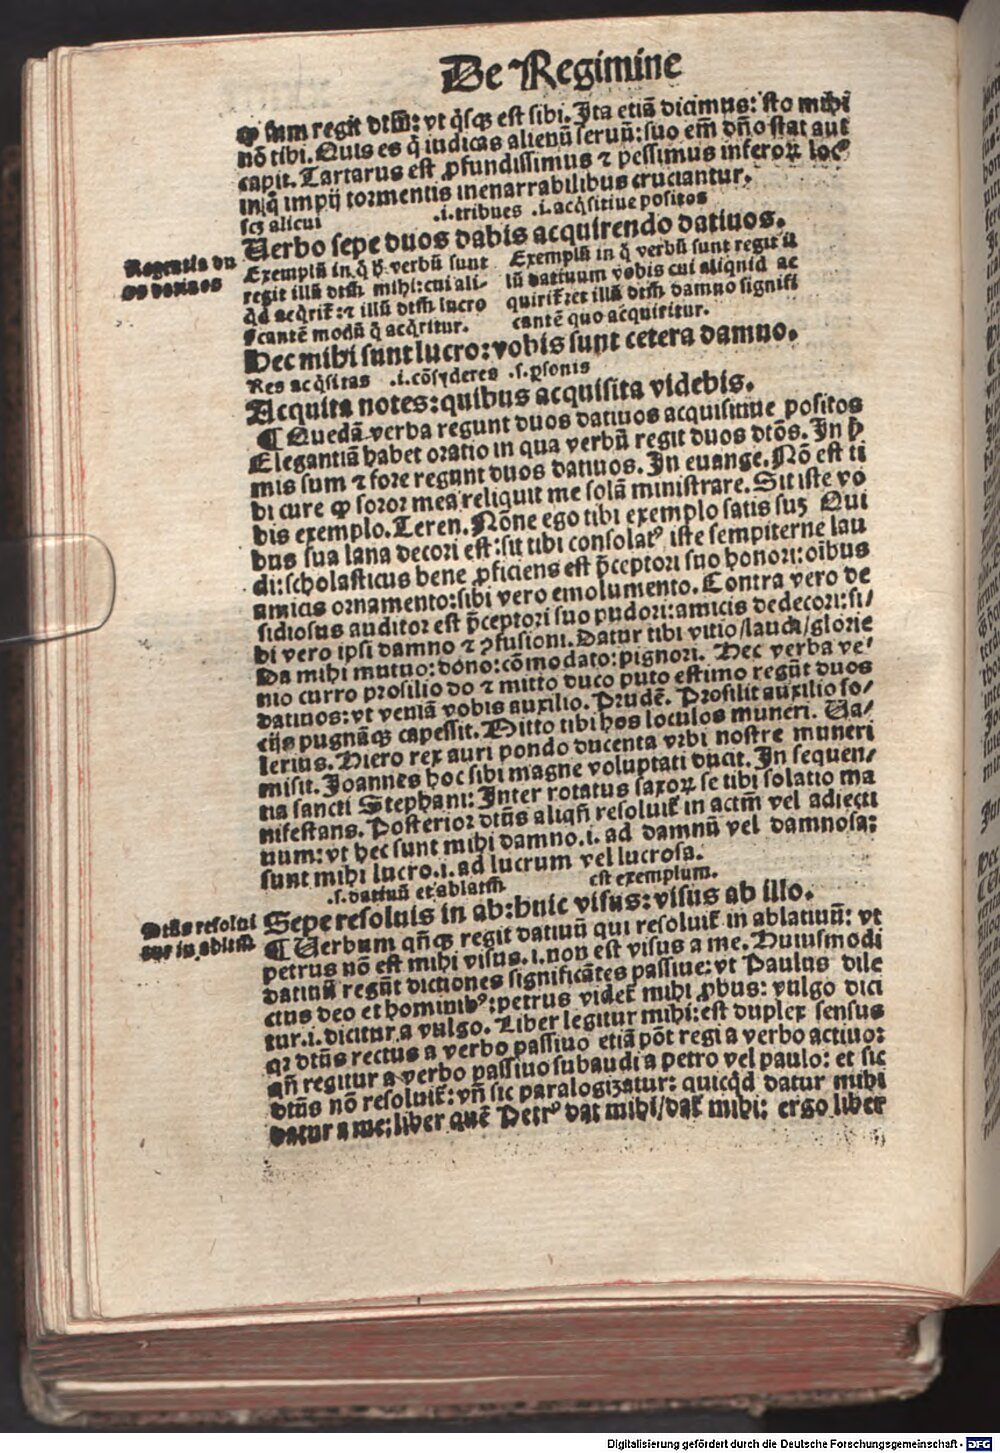 De Regimine
ꝙ sum regit dtm̄: vt q̇sꝙ est sibi. Ita etiã dicimus: sto mihi
nō tibi. Quis es q̇ iudicas alienũ seruũ: suo em̄ dño stat aut
capit. Tartarus est ꝓfundissimus ⁊ pessimus inferoꝝ locꝰ
in q̇ impij tormentis inenarrabilibus cruciantur.
scꝫ alicui .i. tribues .i. acq̇sitiue positos
Uerbo sepe duos dabis acquirendo datiuos.
Regentia du
os datiuos
Exemplũ in q̇ ꝧ verbũ sunt
regit illũ dtm̄ mihi: cui ali-
q̇d acq̇rit̃: ⁊ illũ dtm̄ lucro
ſcantē modũ q̇ acq̇ritur.
Exemplũ in q̇ verbũ sunt regit il
lũ datiuum vobis cui aliquid ac
quirit̃: et illũ dtm̄ damno signifi
cantē quo acquiritur.
Hec mihi sunt lucro: vobis sunt cetera damno.
Res acq̇sitas .i. cõsyderes .s. ꝑsonis
Acquita notes: quibus acquisita videbis.
¶ Quedã verba regunt duos datiuos acquisitiue positos
Elegantiã habet oratio in qua verbũ regit duos dtõs. In ꝑ
mis sum ⁊ fore regunt duos datiuos. In euange. Nõ est ti
bi cure ꝙ soror mea reliquit me solã ministrare. Sit iste vo
bis exemplo. Teren. Nõne ego tibi exemplo satis suꝫ Qui
bus sua lana decori est: sit tibi consolatꝰ iste sempiterne lau
di: scholasticus bene ꝓficiens est p̄ceptori suo honori: oĩbus
amicis ornamento: sibi vero emolumento. Contra vero de
sidiosus auditor est p̄ceptori suo pudori: amicis dedecori: si/
bi vero ipsi damno ⁊ ↄfusioni. Datur tibi vitio/laudi/glorie
Da mihi mutuo: dono: cõmodato: pignori. Hec verba ve/
nio curro prosilio do ⁊ mitto duco puto estimo regũt duos
datiuos: vt veniã vobis auxilio. Prudē. Prosilit auxilio so/
cijs pugnãꝙ capessit. Mitto tibi hos loculos muneri. Ua/
lerius. Hiero rex auri pondo ducenta vrbi nostre muneri
misit. Joannes hoc sibi magne voluptati ducit. In sequen/
tia sancti Stephani: Inter rotatus saxoꝝ se tibi solatio ma
nifestans. Posterior dtũs aliqñ resoluit̃ in actm̄ vel adiecti
uum: vt hec sunt mihi damno .i. ad damnũ vel damnosa:
sunt mihi lucro .i. ad lucrum vel lucrosa.
.s. datiuũ et ablatm̄ est exemplum.
Dtũs resolui
tur in ablatm̄
Sepe resoluis in ab: huic visus: visus ab illo.
¶ Uerbum qñꝙ regit datiuũ qui resoluit̃ in ablatiuũ: vt
petrus nõ est mihi visus .i. non est visus a me. Huiusmodi
datiuũ regũt dictiones significãtes passiue: vt Paulus dile
ctus deo et hominibꝰ: petrus videt̃ mihi ꝓbus: vulgo dici
tur .i. dicitur a vulgo. Liber legitur mihi: est duplex sensus
qꝛ dtũs rectus a verbo passiuo etiã põt regi a verbo actiuo:
qñ regitur a verbo passiuo subaudi a petro vel paulo: et sic
dtũs nõ resoluit̃: vñ sic paralogizatur: quicq̇d datur mihi
datur a me: liber quē Petrꝰ dat mihi/dat̃ mihi: ergo liber
Digitalisierung gefördert durch die Deutsche Forschungsgemeinschaft - DFG